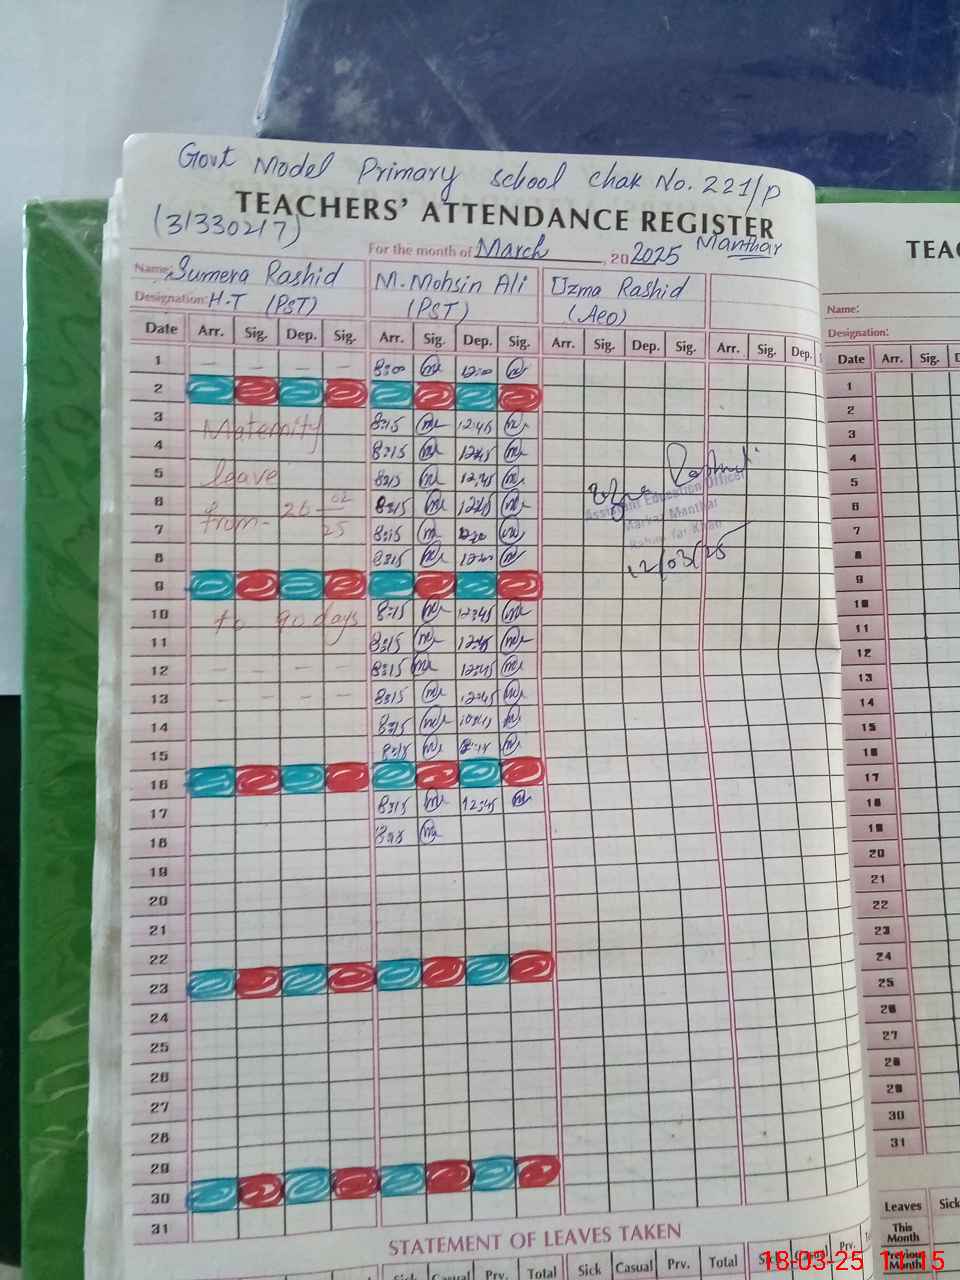 Govt Model Primary school Chak No. 221/P
TEACHERS' ATTENDANCE REGISTER
(31330217)
Manthar
For the month of March, 20 2025
Name: Sumera Rashid M. Mohsin Ali Uzma Rashid
Designation: H.T (PST) (PST) (Aeo)
Date Arr. Sig. Dep. Sig. Arr. Sig. Dep. Sig. Arr. Sig. Dep. Sig. Arr. Sig. Dep.
1 — — — — 8:00 12:00
2
3 Maternity 8:15 12:45
4 8:15 12:45
5 leave 8:15 12:45
6 from - 26-02 8:15 12:45
7 25 8:15
8 8:15
9
10 to 90 days 8:15 12:45
11 8:15 12:45
12 — — — — 8:15 12:45
13 — — — 8:15 12:45
14 8:15
15
16
17 8:15 12:45
18
19
20
21
22
23
24
25
26
27
28
29
30
31
Assistant Education Officer
Markaz Manthar
Rahim Yar Khan
12/03/25
STATEMENT OF LEAVES TAKEN
Sick Casual Prv. Total Sick Casual Prv. Total Sick Casual Prv.
TEAC
Name:
Designation:
Date Arr. Sig. D
1
2
3
4
5
6
7
8
9
10
11
12
13
14
15
16
17
18
19
20
21
22
23
24
25
26
27
28
29
30
31
Leaves Sick
This Month
Previous Month
18-03-25 11:15